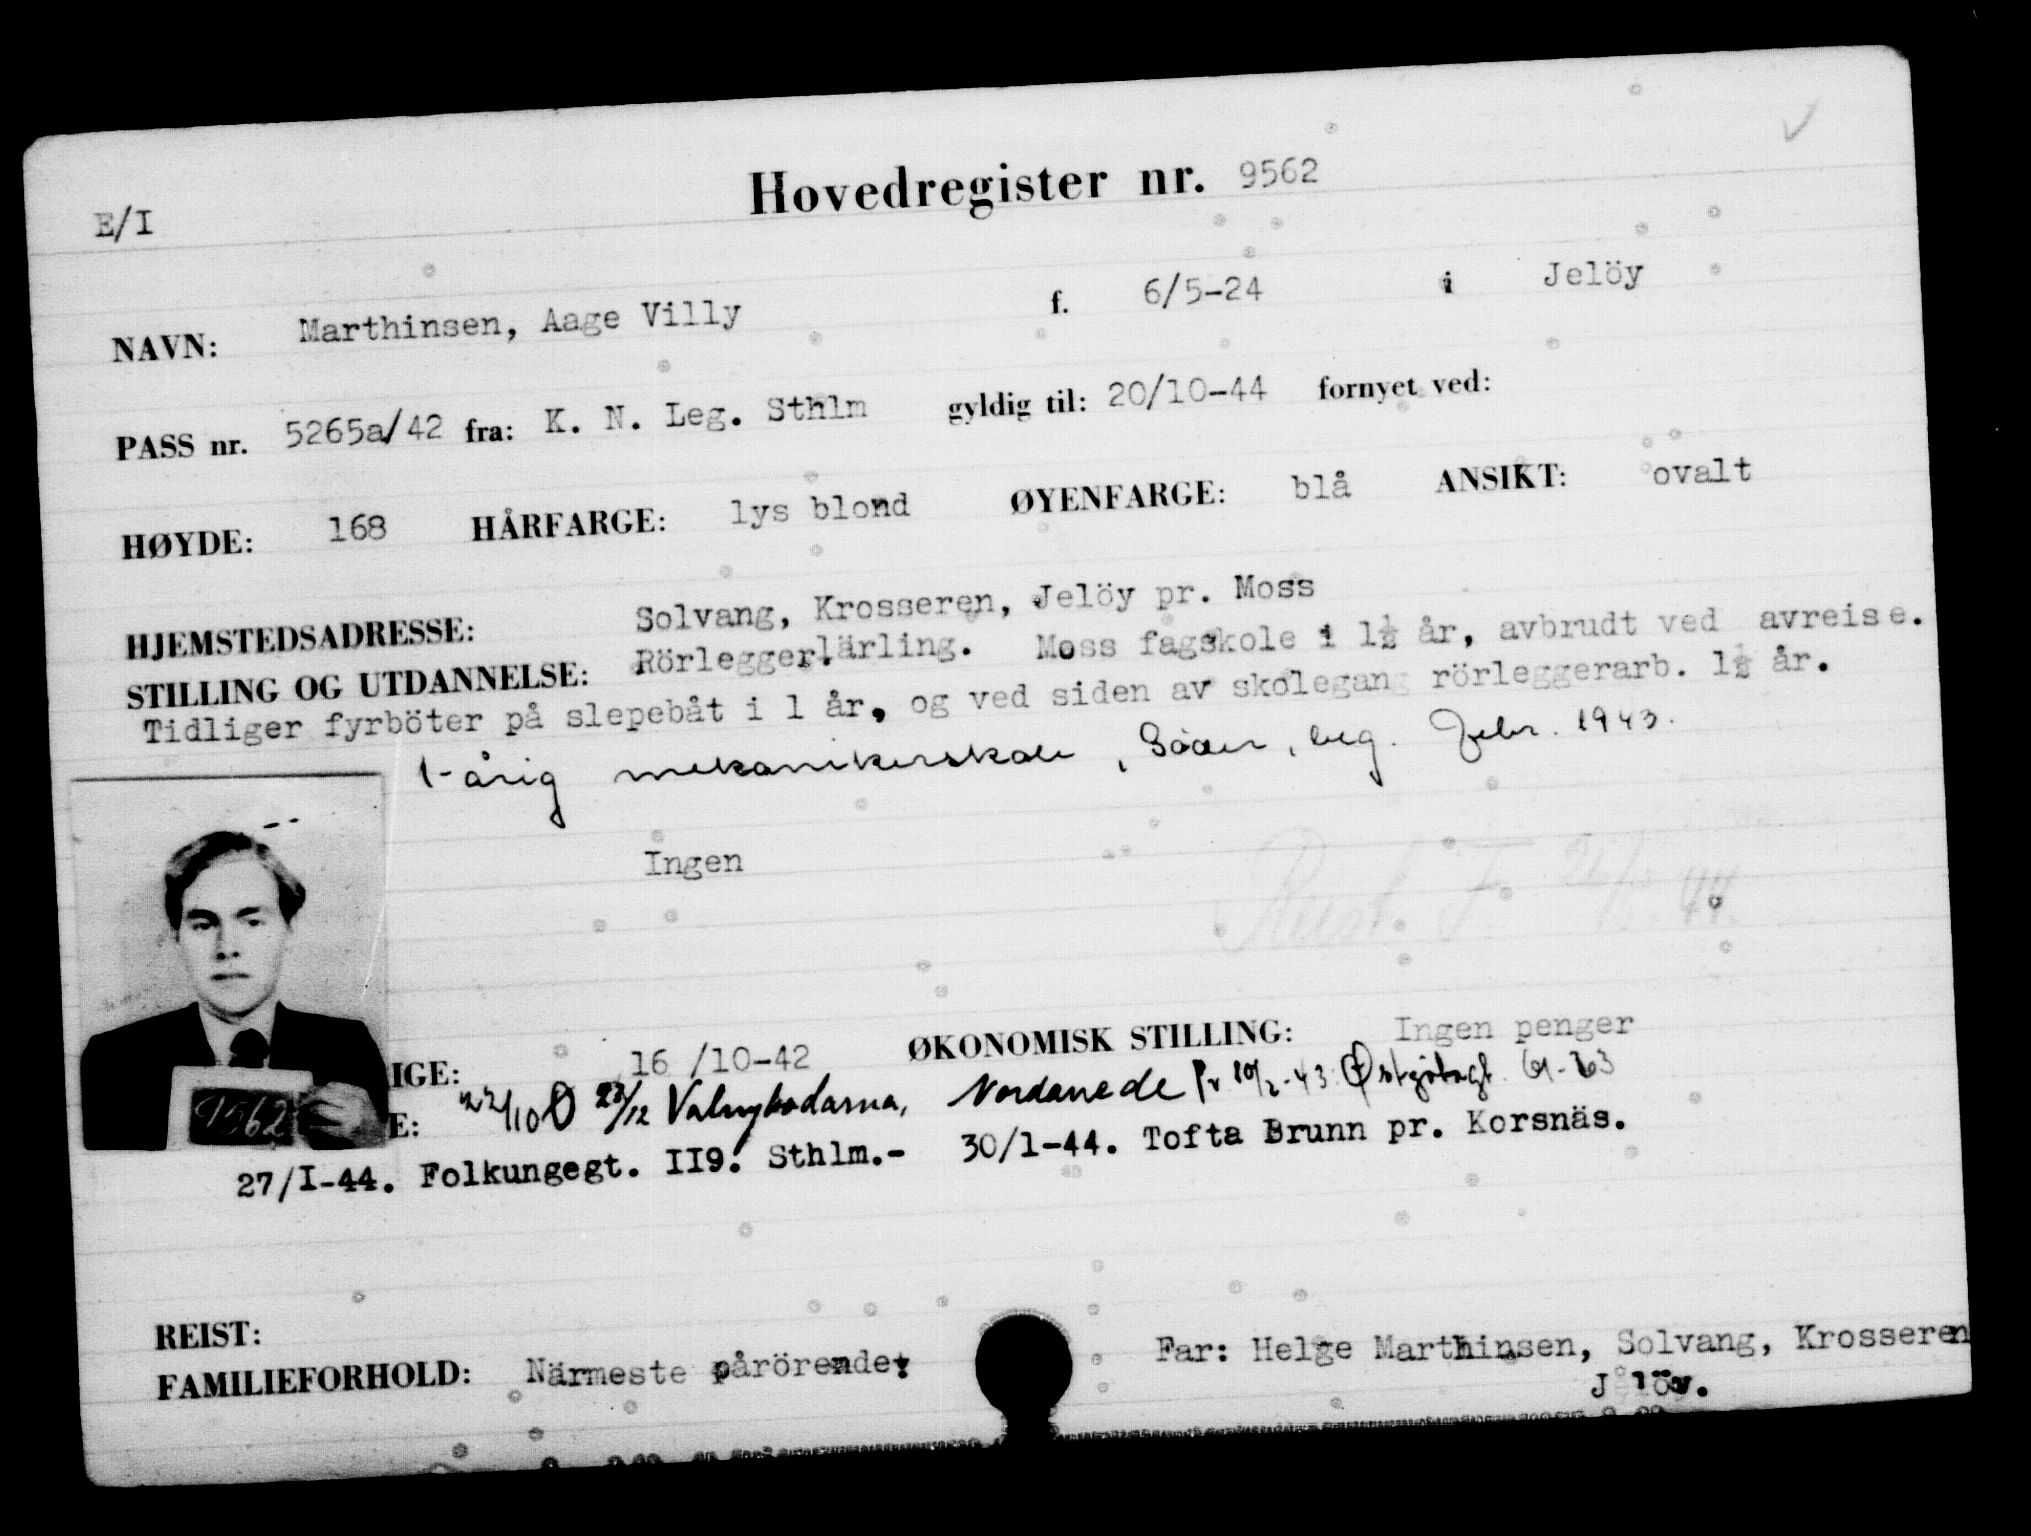 Hovedregister nr. 9562
E/I
NAVN: Marthinsen, Aage Villy f. 6/5-24 i Jelöy
PASS nr. 5265a/42 fra: K. N. Leg. Sthlm gyldig til: 20/10-44 fornyet ved:
HØYDE: 168 HÅRFARGE: lys blond ØYENFARGE: blå ANSIKT: ovalt
HJEMSTEDSADRESSE: Solvang, Krosseren, Jelöy pr. Moss
STILLING OG UTDANNELSE: Rörleggerlärling. Moss fagskole i 1½ år, avbrudt ved avreise.
Tidliger fyrböter på slepebåt i 1 år, og ved siden av skolegang rörleggerarb. 1½ år.
1-årig mekanikerskole, beg. Febr. 1943.
Ingen
IGE: 16/10-42 ØKONOMISK STILLING: Ingen penger
E: 22/10 Ö 23/12 Nordanede Pr 10/2-43 Østgötagt. 61-63
9562
27/I-44. Folkungegt. II9. Sthlm.- 30/1-44. Tofta Brunn pr. Korsnäs.
REIST:
FAMILIEFORHOLD: Närmeste pårörende: Far: Helge Marthinsen, Solvang, Krosseren
Jelöy.